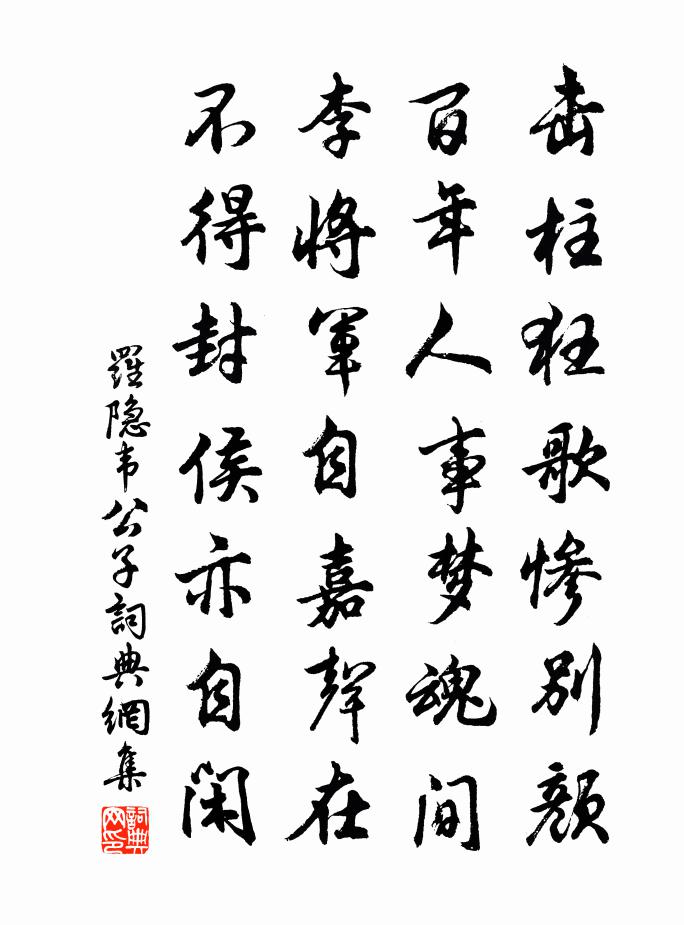 击柱狂歌惨别颜
百年人事梦魂间
李将军自嘉聲在
不得封侯亦自闲
羅隐韦公子詞典網集
詞典网印